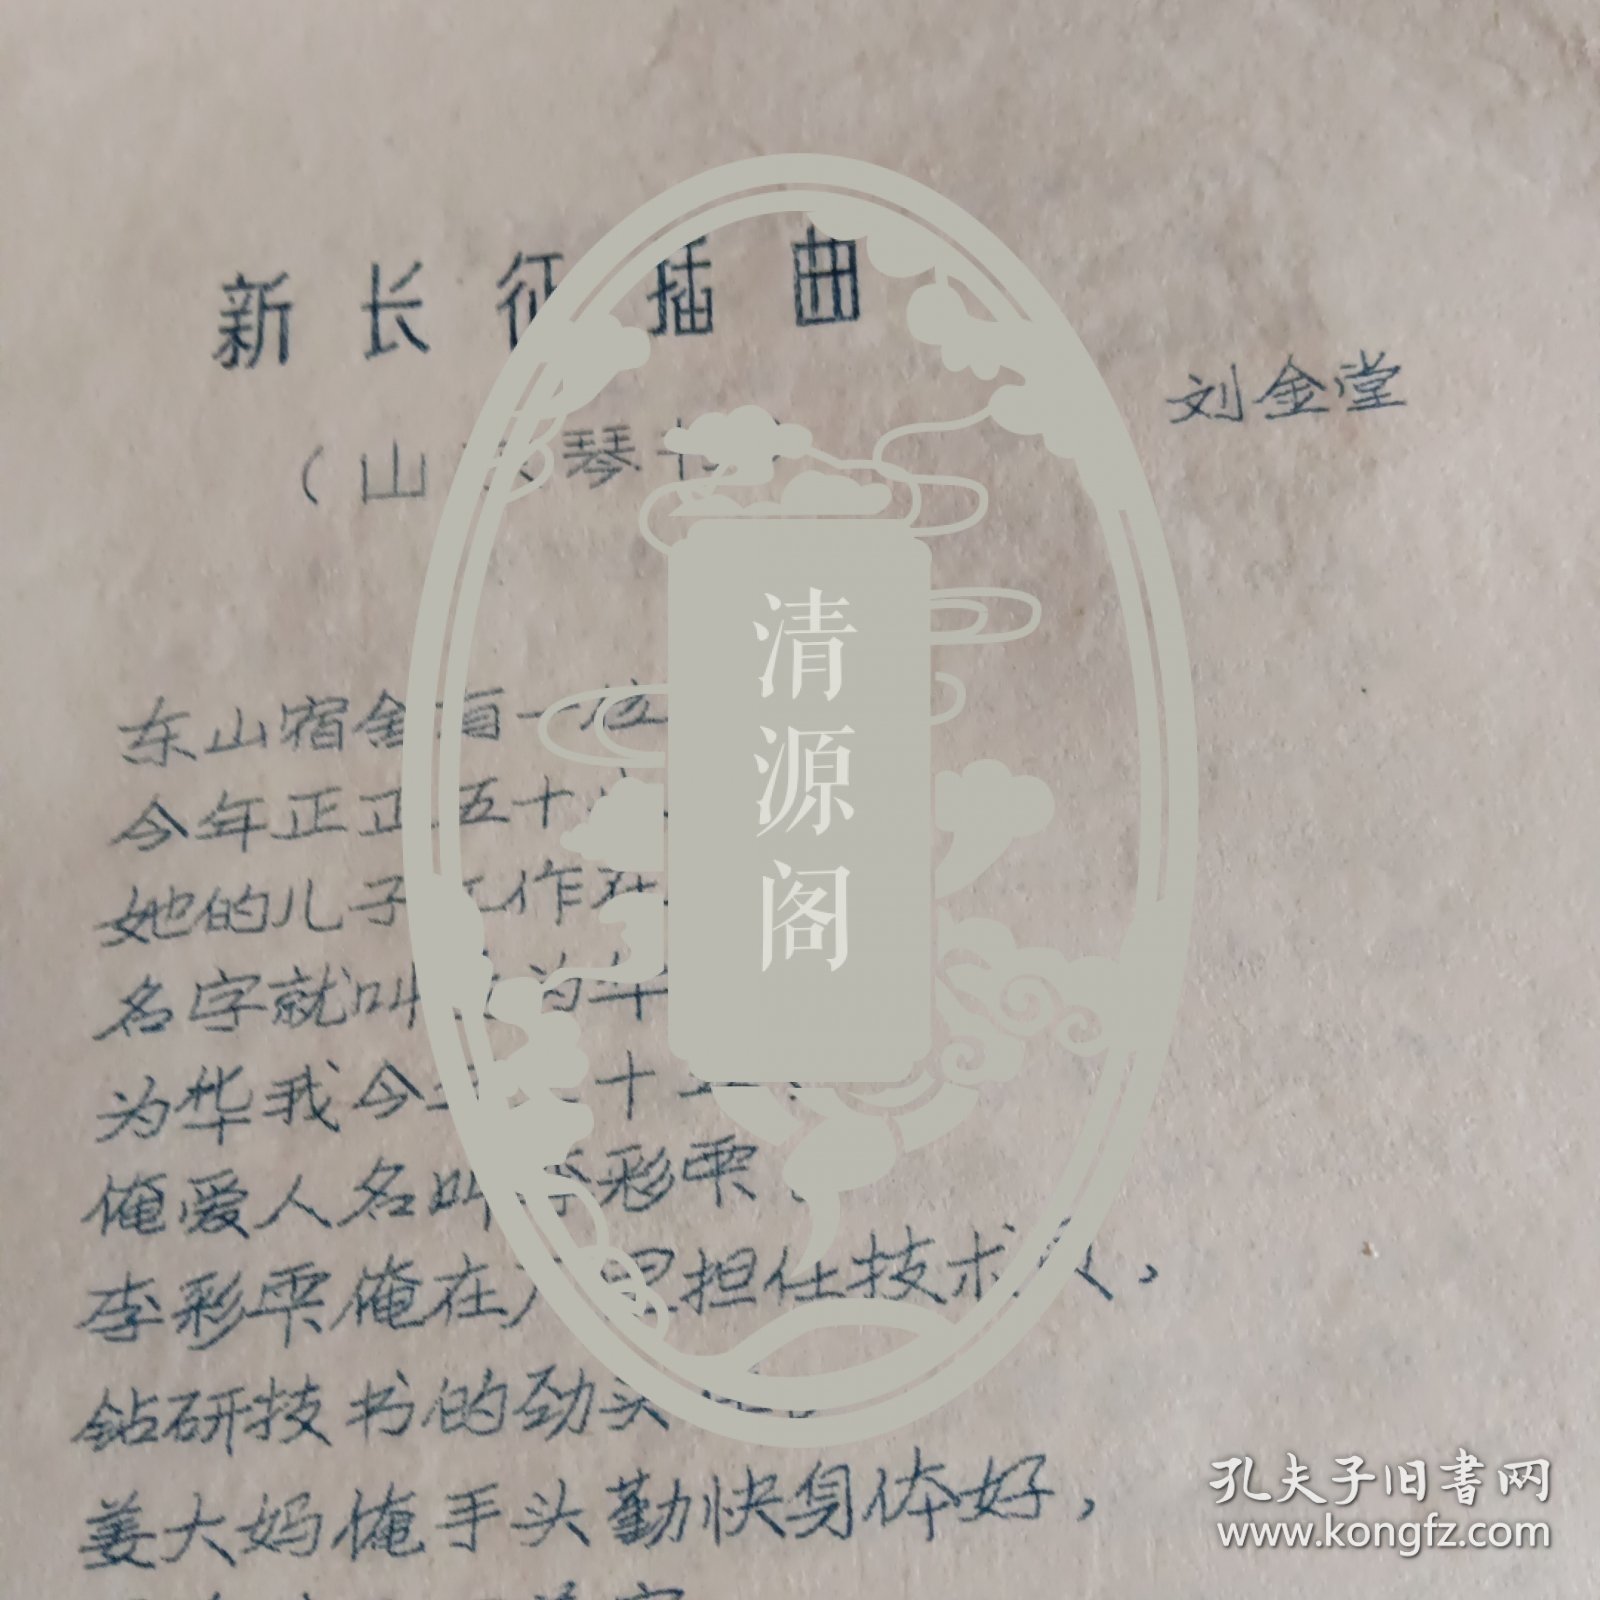 新长征插曲
刘金堂
(山东琴书)
东山宿舍有一位
今年正正五十
她的儿子工作在
名字就叫 为华
为华我今年 十五
俺爱人名叫李彩霞,
李彩霞俺在厂里担任技术员,
钻研技书的劲头
姜大妈俺手头勤快身体好,
清源阁
孔夫子旧书网
www.kongfz.com